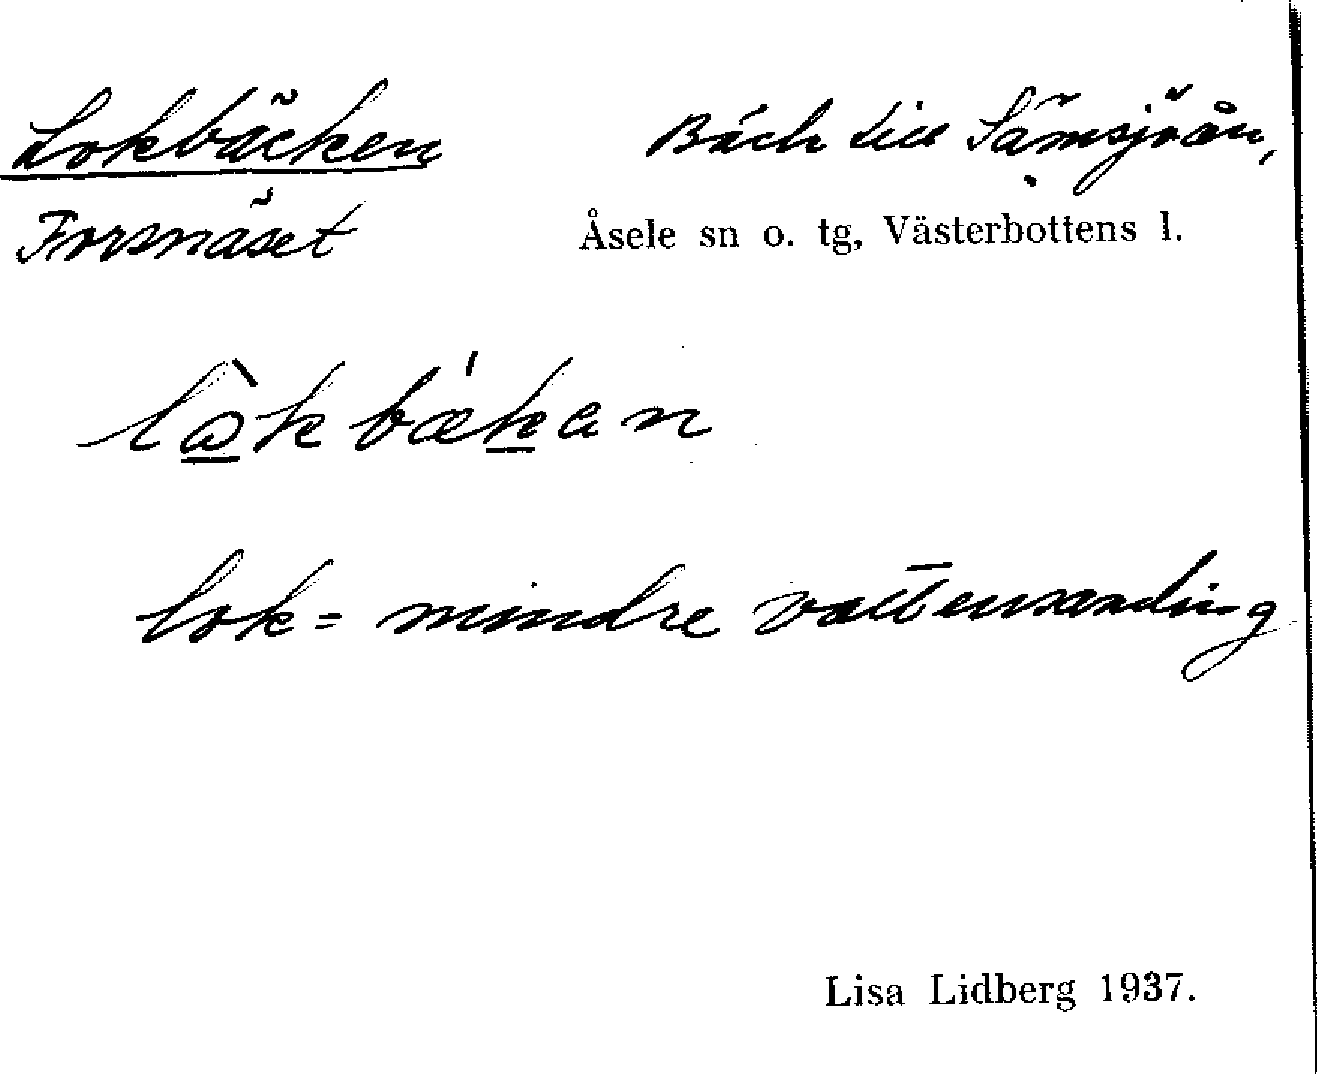 Lokbäcken
Bäck till Sämsjöån,
Forsnäset
Åsele sn o. tg, Västerbottens l.
lok = mindre vattensamling
Lisa Lidberg 1937.